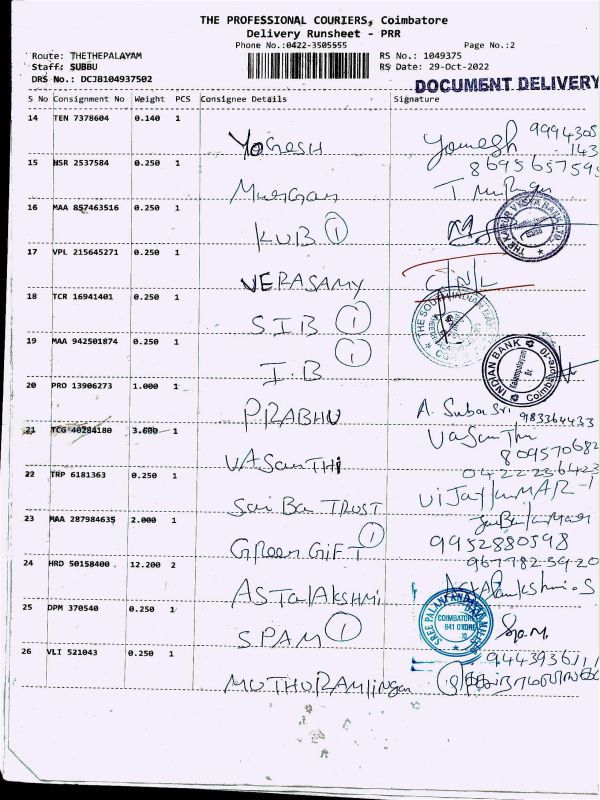 THE PROFESSIONAL COURIERS, Coimbatore
Delivery Runsheet - PRR
Phone No.:0422-3505555
Page No.:2
Route: THETHEPALAYAM
RS No.: 1049375
Staff: SUBBU
RS Date: 29-Oct-2022
DRS No.: DCJB104937502
DOCUMENT DELIVERY
S No Consignment No Weight PCS Consignee Details Signature
14 TEN 7378604 0.140 1
YOGESH Yomegh 9994305
143
15 NSR 2537584 0.250 1
869565759
Murugan T Murugan
16 MAA 857463516 0.250 1
KUB 1
THE KARUR VYSYA BANK LTD.
17 VPL 215645271 0.250 1
VERASAMY
18 TCR 16941401 0.250 1
SIB 1
THE SOUTH INDIAN BANK
19 MAA 942501874 0.250 1
I.B 1
INDIAN BANK
Coimbatore-10
20 PRO 13906273 1.000 1
PRABHU A. Suba Sri 983364433
21 TCG 40284180 3.600 1
Vasanthi
809570682
VASANTHI 0422236423
22 TRP 6181363 0.250 1
Sai Ba TRUST VIJAYKUMAR
23 MAA 287984635 2.000 1
Green GIFT 1 9952880598
24 HRD 50158400 12.200 2
9677825920
ASTALAKSHMI
25 DPM 370540 0.250 1
COIMBATORE
SPAM 1 Spam.
26 VLI 521043 0.250 1
944393611
MUTHURAMLINGAN